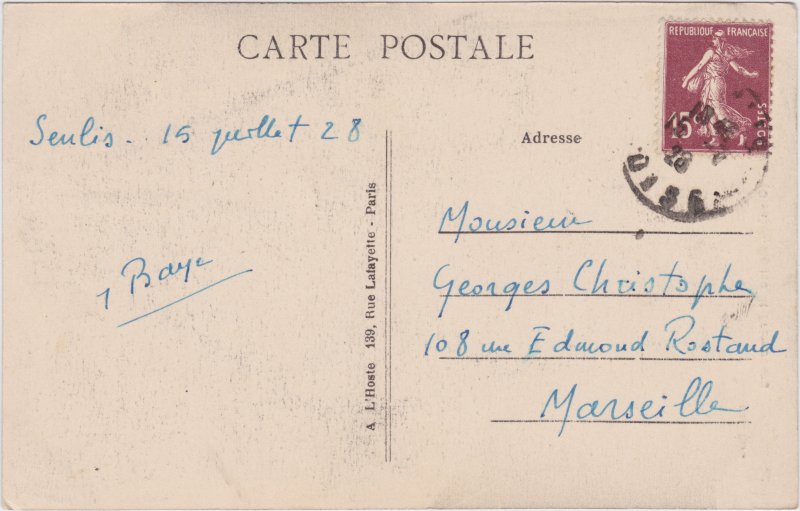 CARTE POSTALE
REPUBLIQUE FRANÇAISE
15
Senlis - 15 juillet 28
Adresse
28
OISE
A L'Hoste 139, Rue Lafayette - Paris
Monsieur
Georges Christophe
108 rue Edmond Rostand
Marseille